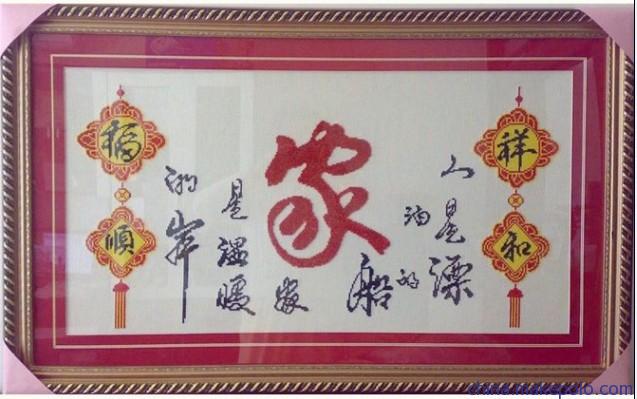 祥和
人是漂
泊的
船
家
家
是温暖
的岸
福順
china.makepolo.com